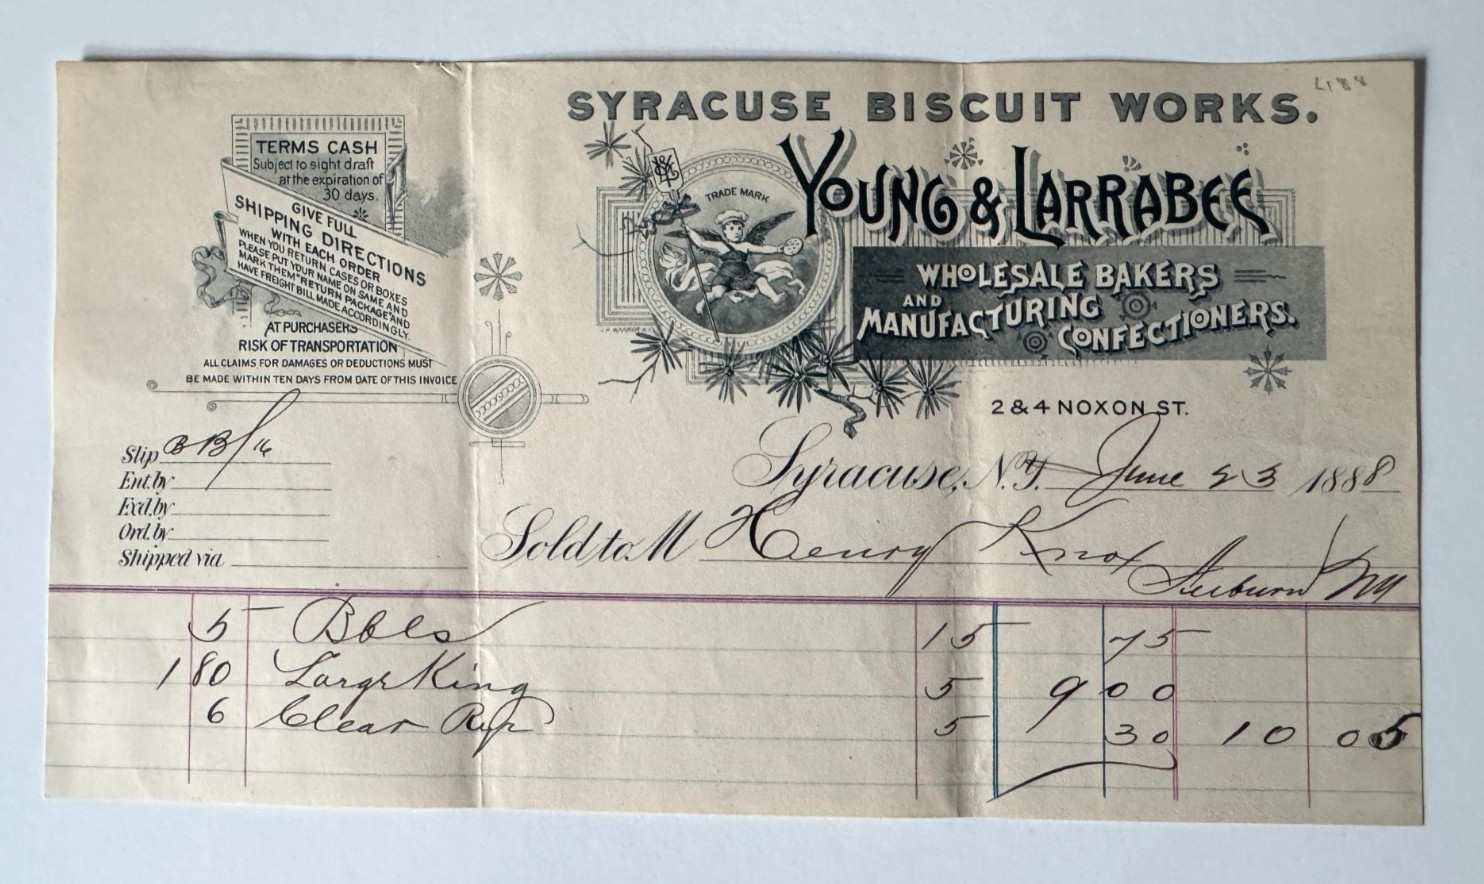 L188
SYRACUSE BISCUIT WORKS.
YOUNG & LARRABEE
WHOLESALE BAKERS
AND
MANUFACTURING
CONFECTIONERS.
2 & 4 NOXON ST.
TRADE MARK
TERMS CASH
Subject to sight draft
at the expiration of
30 days.
GIVE FULL
SHIPPING DIRECTIONS
WITH EACH ORDER
WHEN YOU RETURN CASES OR BOXES
PLEASE PUT YOUR NAME ON SAME AND
MARK THEM "RETURN PACKAGE" AND
HAVE FREIGHT BILL MADE ACCORDINGLY.
AT PURCHASERS
RISK OF TRANSPORTATION
ALL CLAIMS FOR DAMAGES OR DEDUCTIONS MUST
BE MADE WITHIN TEN DAYS FROM DATE OF THIS INVOICE
Slip
Ent. by
Exd. by
Ord. by
Shipped via
Syracuse, N.Y. June 23 1888
Sold to M Henry Knox
Auburn NY
5 Bbls 15 75
180 Large King 5 9 00
6 Clear 5 30 10 05